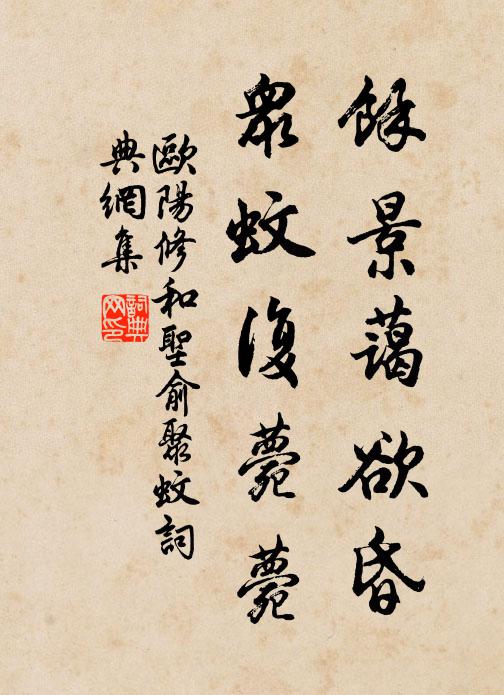 餘景藹欲昏
眾蚊復薨薨
歐陽修和聖俞聚蚊詞
典網集
詞典
网印